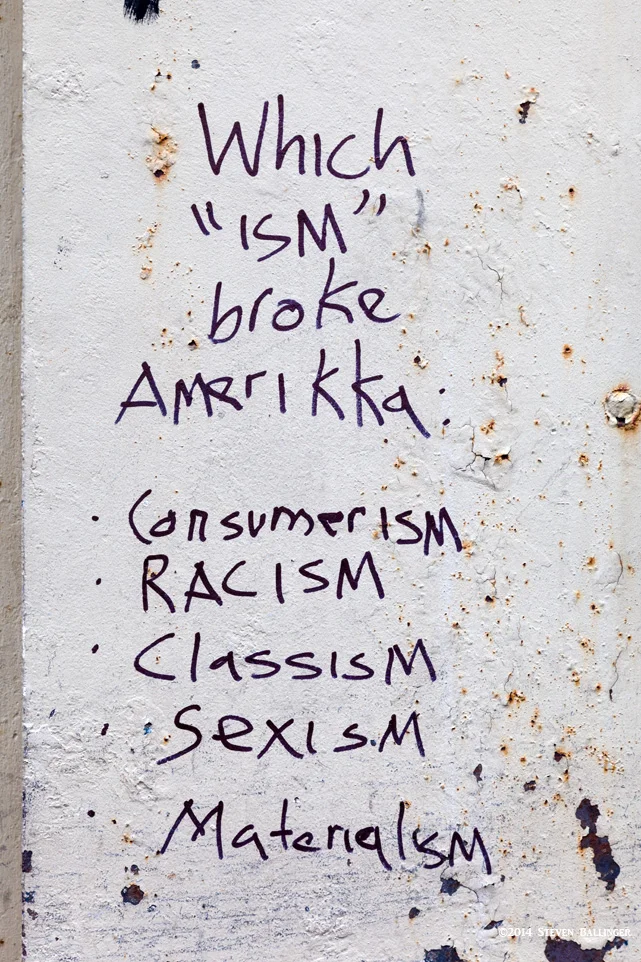 Which
"ISM"
broke
Amerikka:
• Consumerism
• RACISM
• Classism
• Sexism
• Materialism
©2014 STEVEN BALLINGER